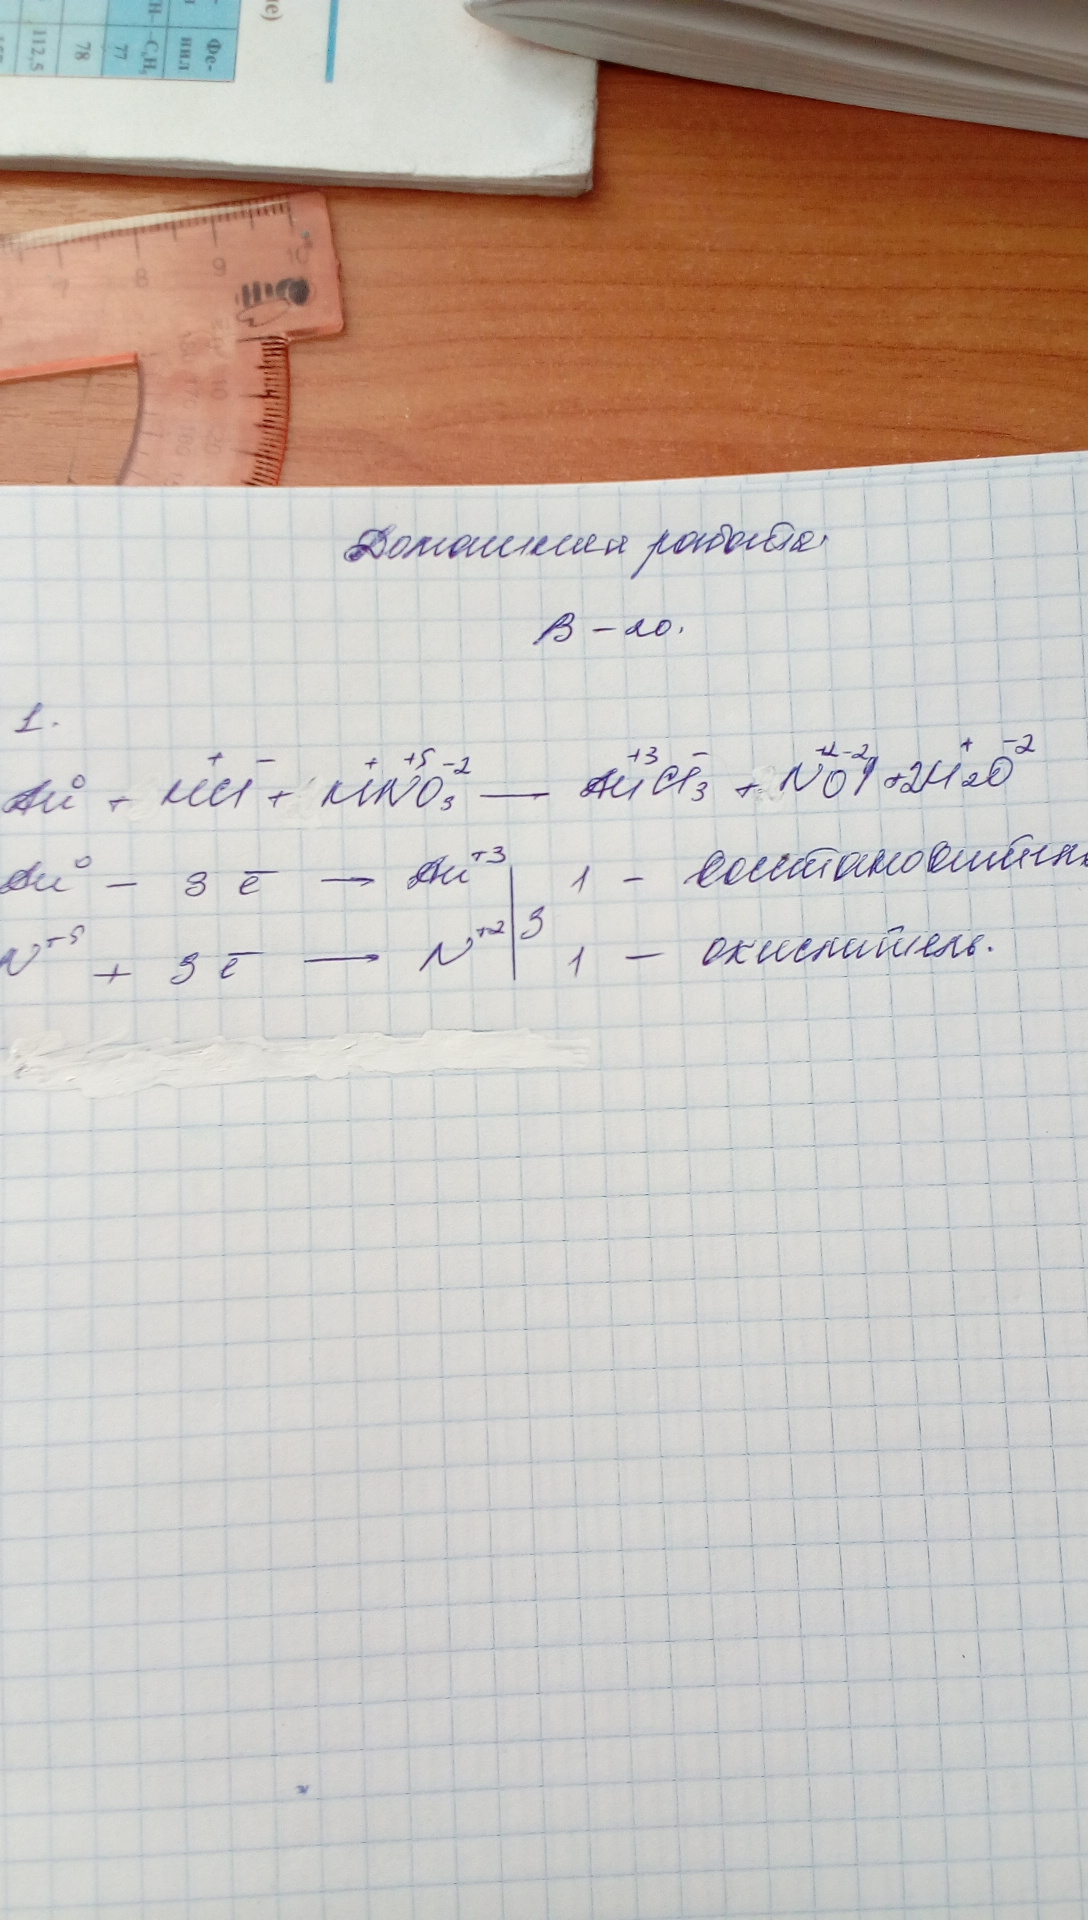 е)
Фе-
нил
–C₆H₅
77
78
112,5
7 8 9 10
Домашняя работа
В – 20.
1.
Au⁰ + H⁺Cl⁻ + H⁺N⁺⁵O₃⁻² — Au⁺³Cl₃⁻ + N⁺²O⁻²↑ + 2H₂⁺O⁻²
Au⁰ – 3ē → Au⁺³ | 1 – восстановитель
N⁺⁵ + 3ē → N⁺² | 3 1 – окислитель.